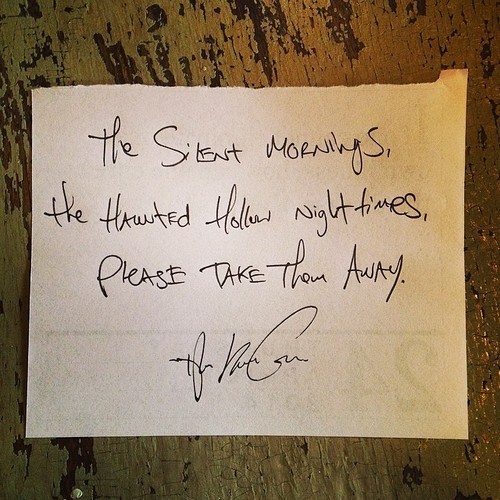 The Silent Mornings,
the Haunted Hollow Nighttimes,
Please Take Them Away.